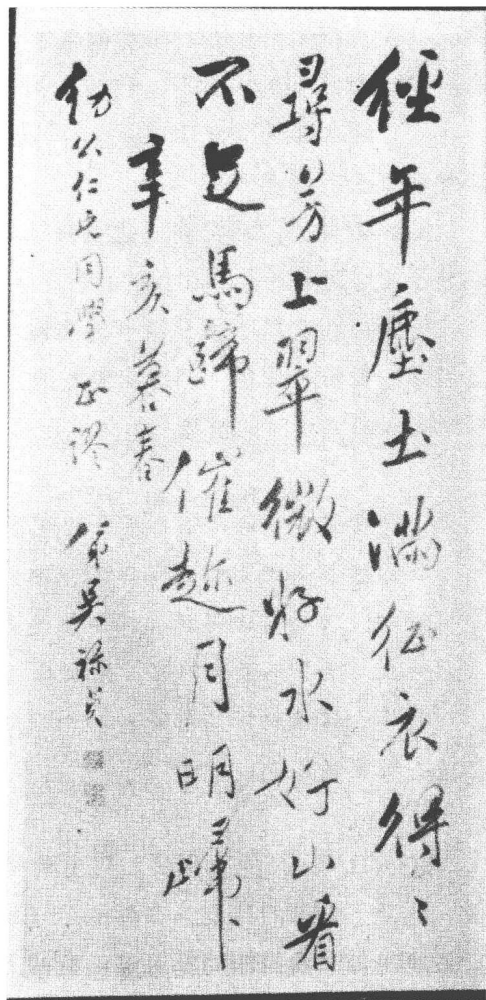 經年塵土滿征衣得〻
尋芳上翠微好水好山看
不足馬蹄催趂月明歸
辛亥暮春
幼公仁兄同學 正謬 弟吳祿貞